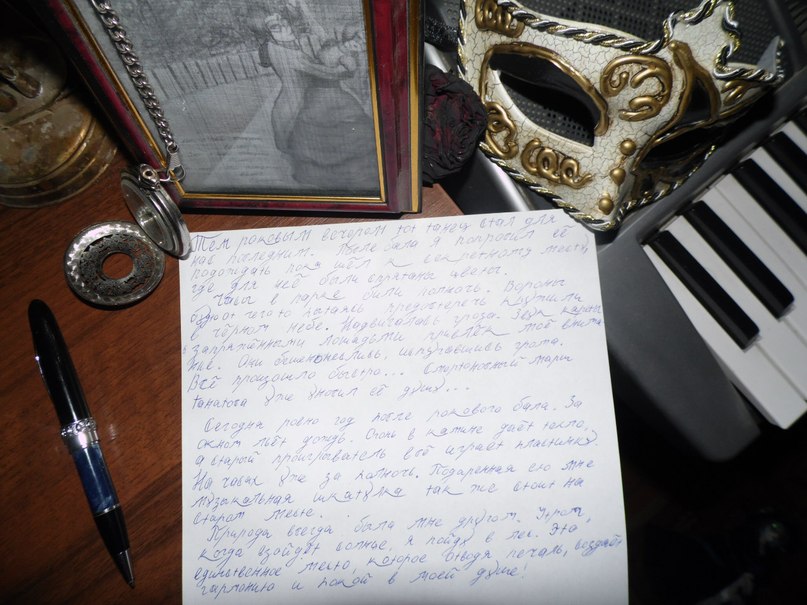 Тем роковым вечером тот танец стал для
нас последним. После бала я попросил её
подождать пока шёл к секретному месту,
где для неё были спрятаны цветы.
Часы в парке били полночь. Вороны
будто чего то пытаясь предостеречь кружили
в чёрном небе. Надвигалась гроза. Звук кареты
запряжённой лошадьми привлёк моё внима
ние. Они бешено неслись, испугавшись грома.
Всё произошло быстро... Смертоносный марш
танатоса уже уносил её душу...
Сегодня ровно год после рокового бала. За
окном льёт дождь. Огонь в камине даёт тепло,
а старый проигрыватель всё играет пластинку.
На часах уже за полночь. Подаренная ею мне
музыкальная шкатулка так же стоит на
старом месте.
Природа всегда была мне другом. Утром,
когда взойдёт солнце, я пойду в лес. Это,
единственное место, которое отводя печаль, создаёт
гармонию и покой в моей душе!